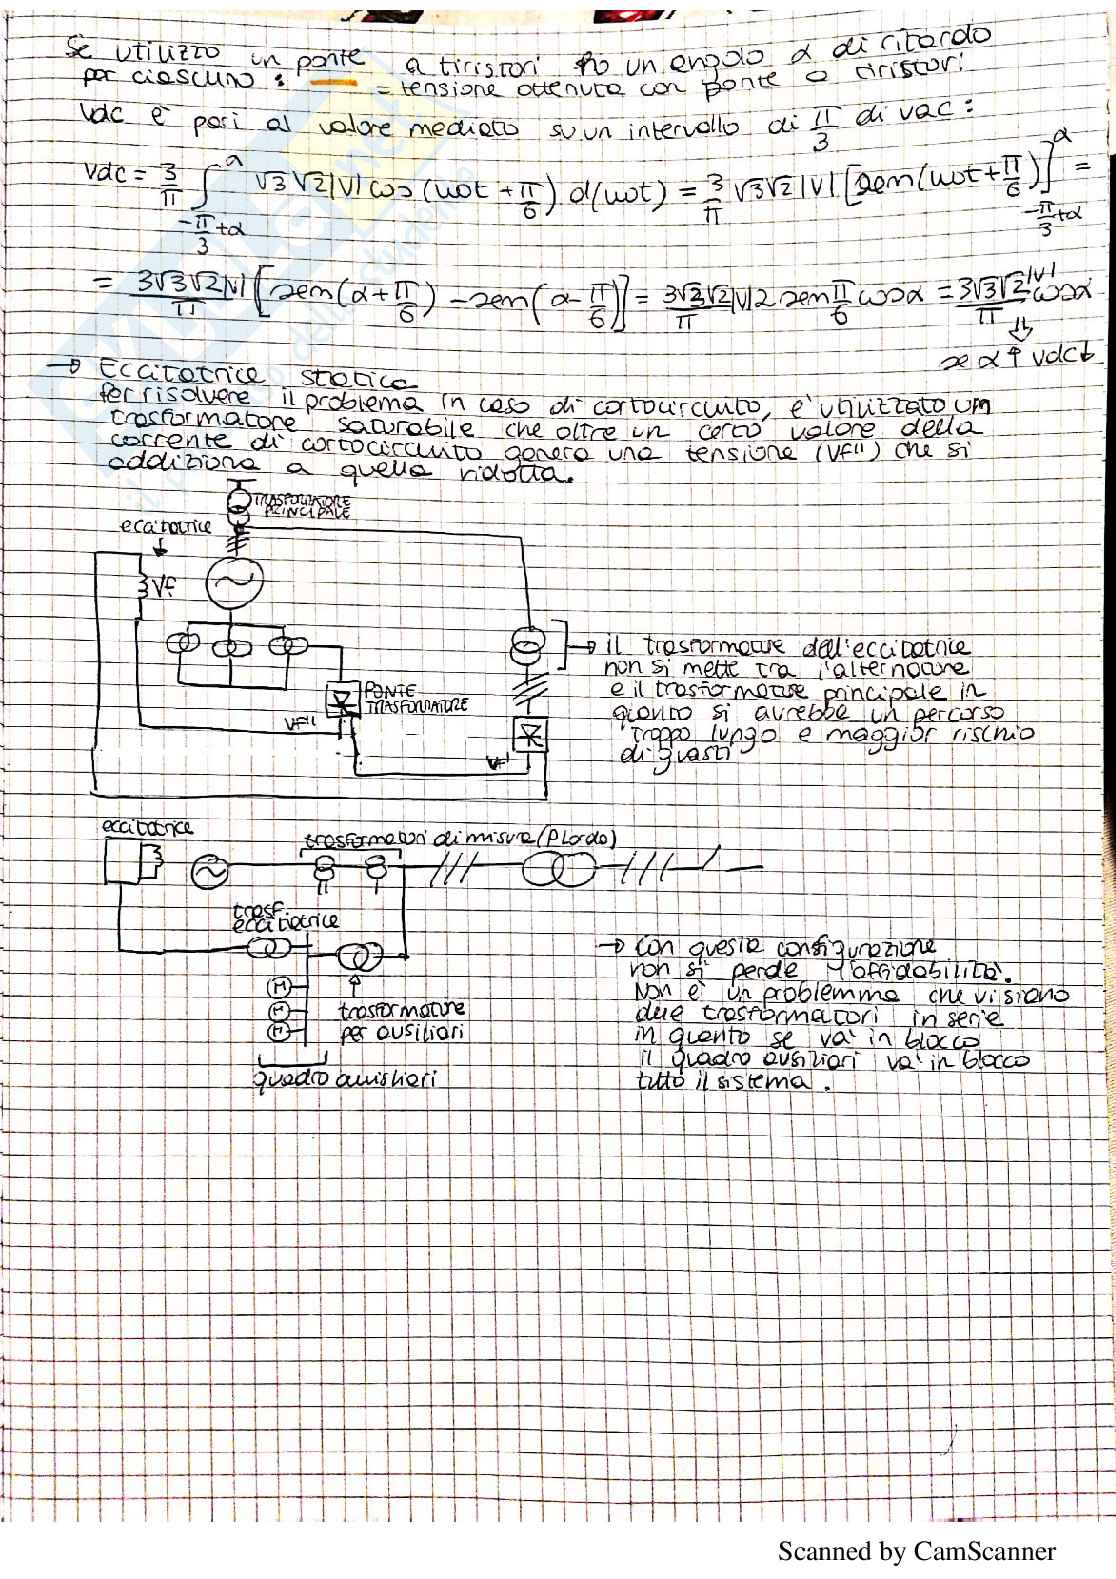 Se utilizzo un ponte a tiristori ho un angolo α di ritardo
per ciascuno : = tensione ottenuta con ponte a tiristori
Vdc è pari al valore mediato su un intervallo di π/3 di vac :
Vdc = 3/π ∫_{-π/3+α}^{α} √3√2|V| cos(ωot + π/6) d(ωot) = 3/π √3√2|V| [sen(ωot+π/6)]_{-π/3+α}^{α} =
= 3√3√2|V|/π [sen(α+π/6) - sen(α-π/6)] = 3√3√2/π |V| 2 sen π/6 cosα = 3√3√2|V|/π cosα
⇓
se α↑ Vdc↓
→ Eccitatrice statica
Per risolvere il problema in caso di cortocircuito, e' utilizzato un
trasformatore saturabile che oltre un certo valore della
corrente di cortocircuito genera una tensione (VF'') che si
addiziona a quella ridotta.
TRASFORMATORE
PRINCIPALE
eccitatrice
VF
PONTE
TRASFORMATORE
VF''
VF'
→ il trasformatore dell'eccitatrice
non si mette tra l'alternatore
e il trasformatore principale in
quanto si avrebbe un percorso
troppo lungo e maggior rischio
di guasti
eccitatrice
trasformatori di misura (P Lorda)
trasf.
eccitatrice
M
M
M
trasformatore
per ausiliari
quadro ausiliari
→ Con questa configurazione
non si perde l'affidabilità.
Non è un problemma che vi siano
due trasformatori in serie
in quanto se va' in blocco
il quadro ausiliari va' in blocco
tutto il sistema.
Scanned by CamScanner